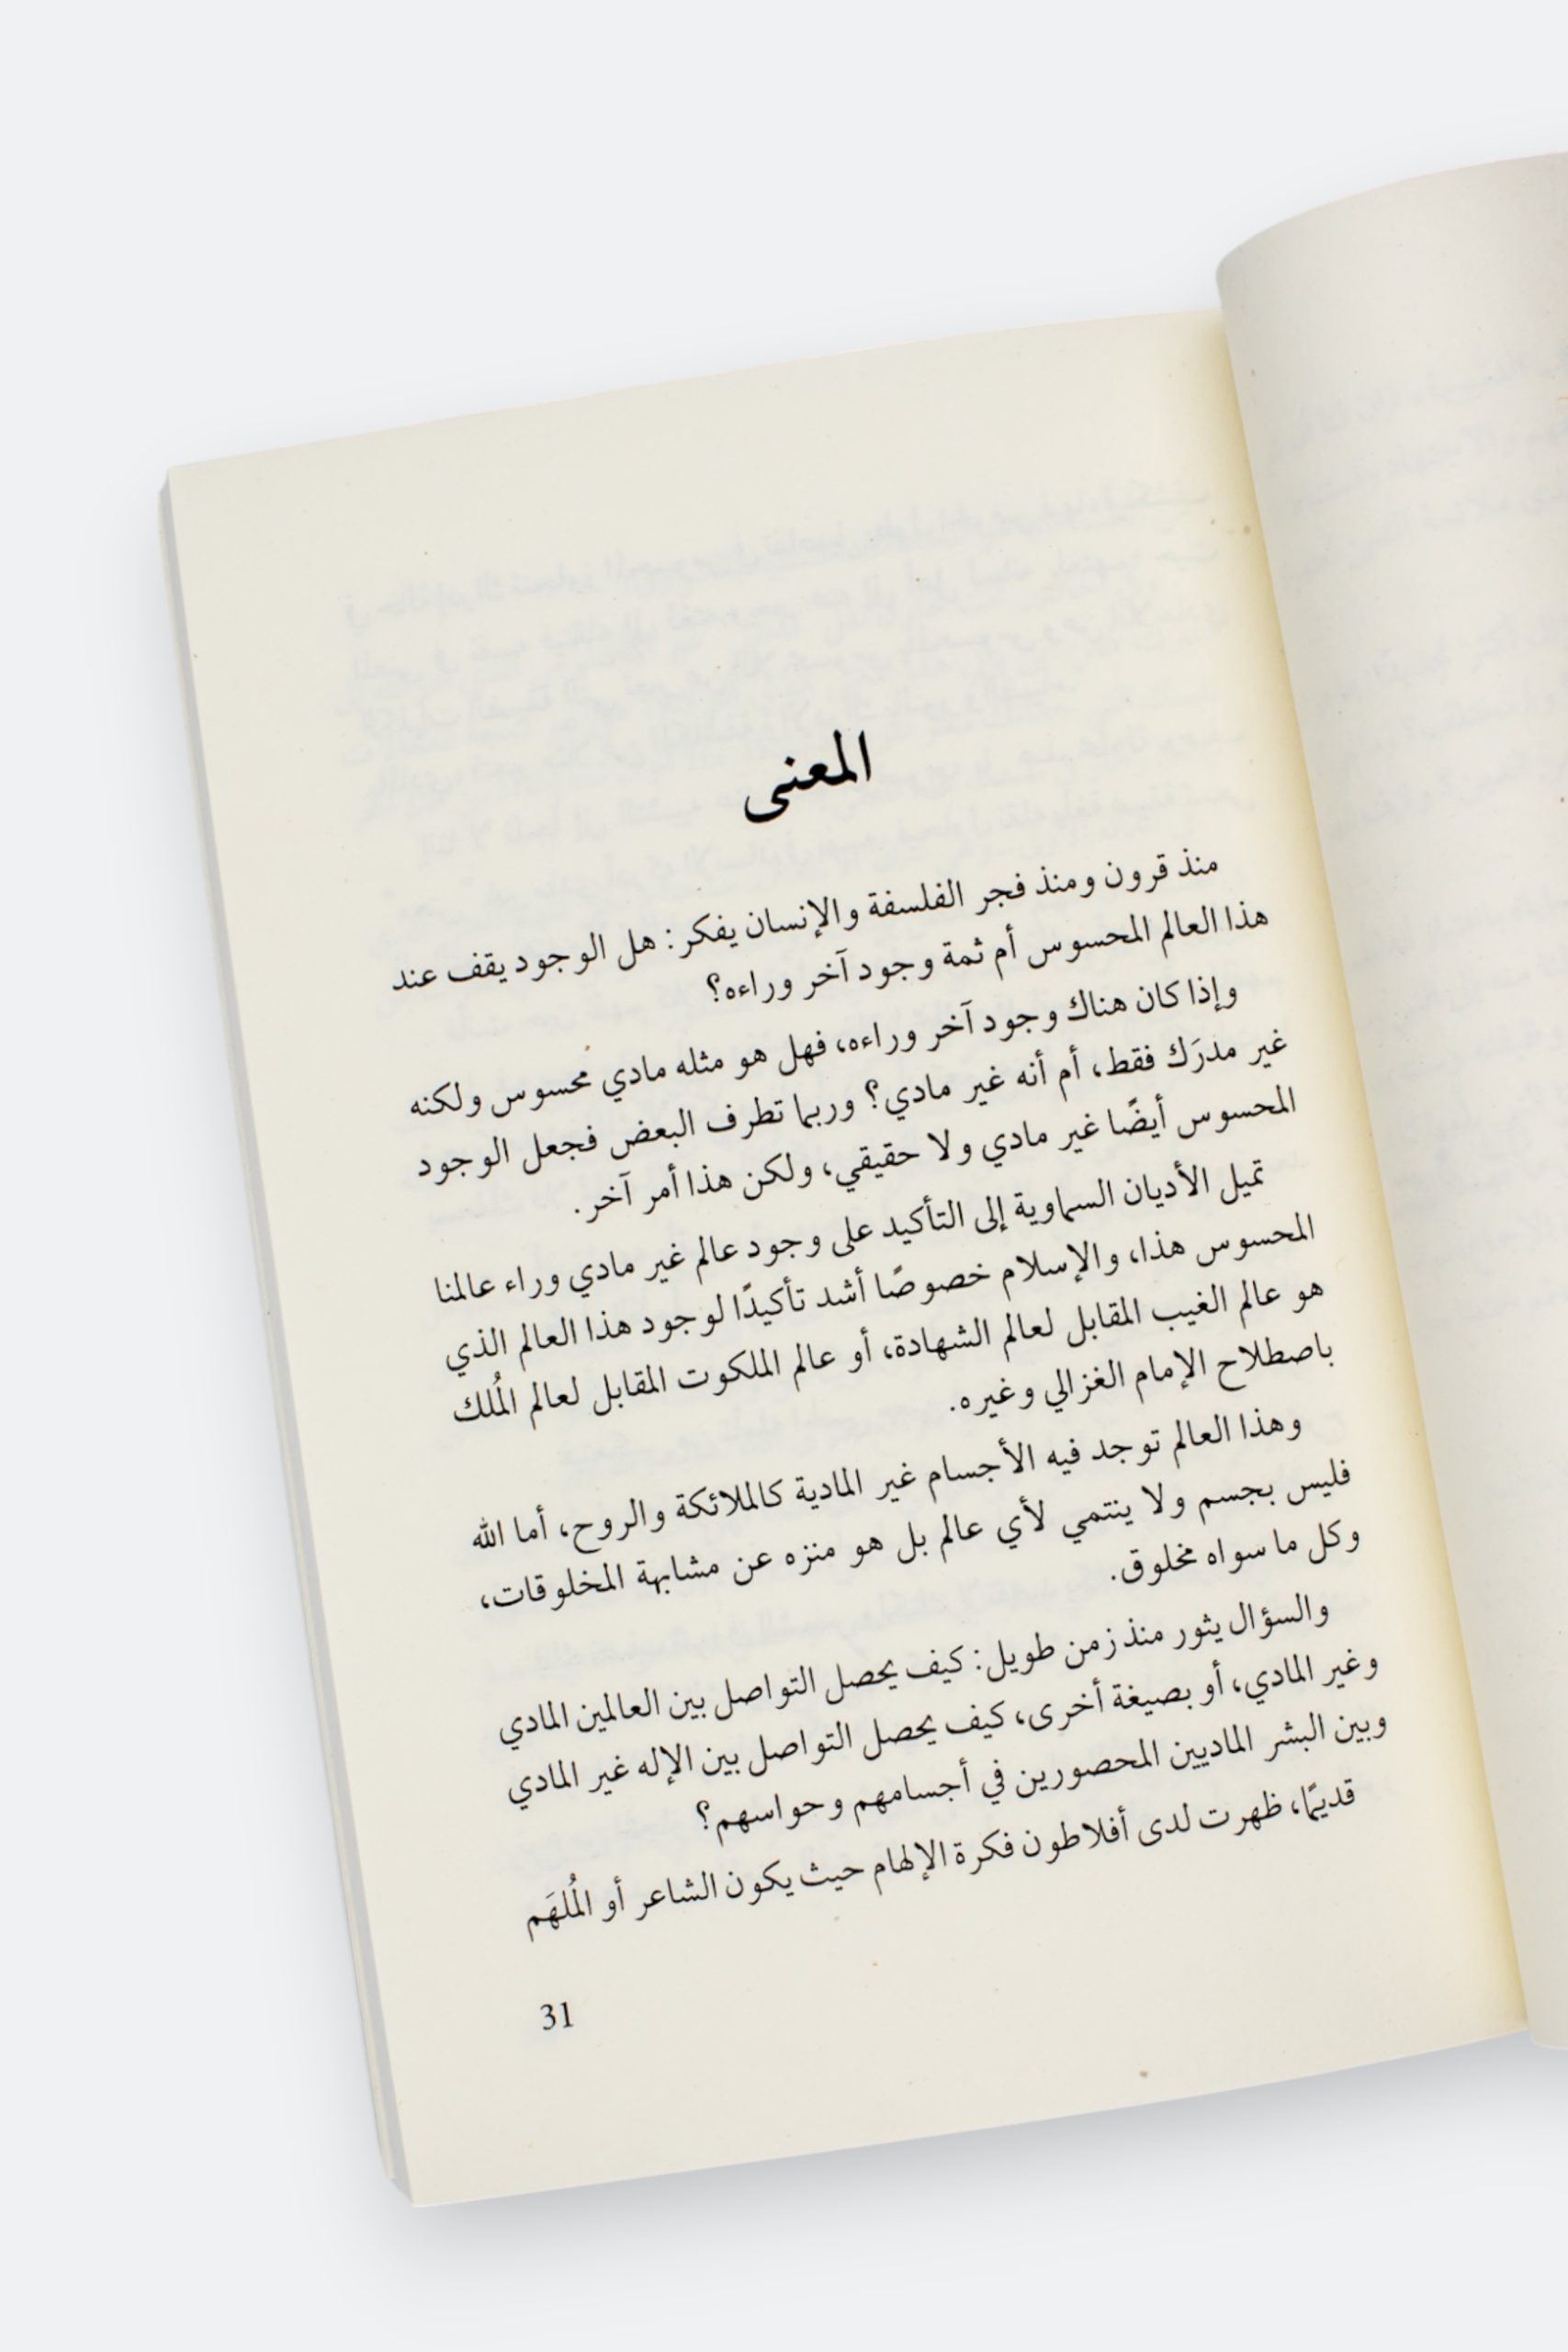 المعنى
منذ قرون ومنذ فجر الفلسفة والإنسان يفكر: هل الوجود يقف عند
هذا العالم المحسوس أم ثمة وجود آخر وراءه؟
وإذا كان هناك وجود آخر وراءه، فهل هو مثله مادي محسوس ولكنه
غير مدرَك فقط، أم أنه غير مادي؟ وربما تطرف البعض فجعل الوجود
المحسوس أيضًا غير مادي ولا حقيقي، ولكن هذا أمر آخر.
تميل الأديان السماوية إلى التأكيد على وجود عالم غير مادي وراء عالمنا
المحسوس هذا، والإسلام خصوصًا أشد تأكيدًا لوجود هذا العالم الذي
هو عالم الغيب المقابل لعالم الشهادة، أو عالم الملكوت المقابل لعالم المُلك
باصطلاح الإمام الغزالي وغيره.
وهذا العالم توجد فيه الأجسام غير المادية كالملائكة والروح، أما الله
فليس بجسم ولا ينتمي لأي عالم بل هو منزه عن مشابهة المخلوقات،
وكل ما سواه مخلوق.
والسؤال يثور منذ زمن طويل: كيف يحصل التواصل بين العالمين المادي
وغير المادي، أو بصيغة أخرى، كيف يحصل التواصل بين الإله غير المادي
وبين البشر الماديين المحصورين في أجسامهم وحواسهم؟
قديمًا، ظهرت لدى أفلاطون فكرة الإلهام حيث يكون الشاعر أو المُلهَم
31